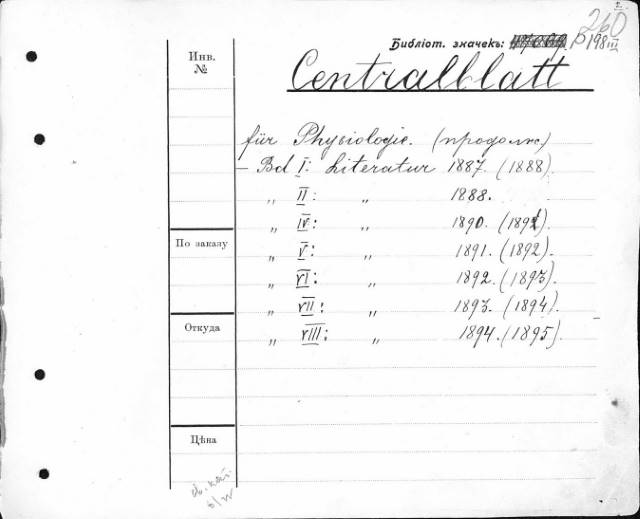 260
Библіот. значекъ: В 198 III
Инв. №
Centralblatt
für Physiologie. (продолж.)
– Bd I: Literatur 1887. (1888).
„ II: „ 1888.
„ IV: „ 1890. (1891).
По заказу
„ V: „ 1891. (1892).
„ VI: „ 1892. (1893).
„ VII: „ 1893. (1894).
Откуда
„ VIII: „ 1894. (1895).
Цѣна